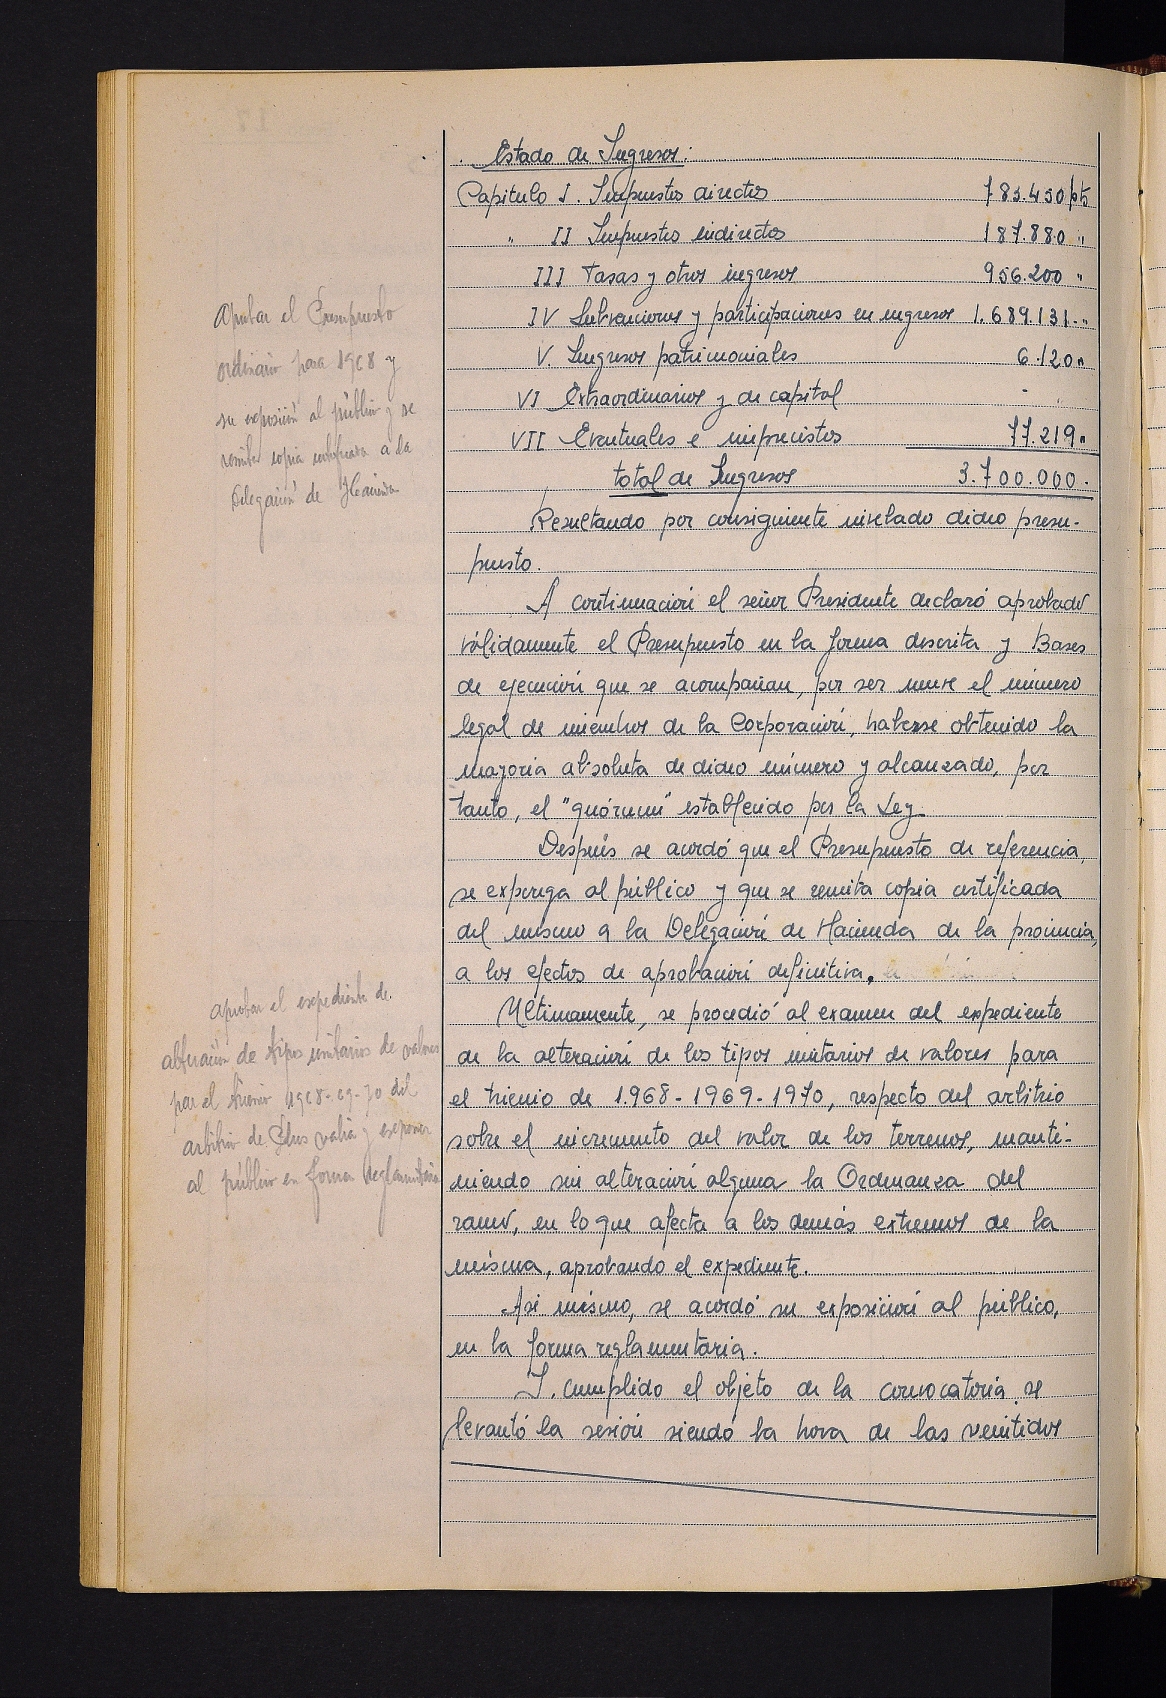 Estado de Ingresos:
Capitulo I. Impuestos directos 783.450 pts
" II Impuestos indirectos 187.880 "
III Tasas y otros ingresos 956.200 "
IV Subvenciones y participaciones en ingresos 1.689.131 "
V. Ingresos patrimoniales 6.120 "
VI Extraordinarios y de capital - "
VII Eventuales e imprevistos 77.219 "
total de Ingresos 3.700.000.
Resultando por consiguiente nivelado dicho presu-
puesto.
A continuación el señor Presidente declaró aprobado
válidamente el Presupuesto en la forma descrita y Bases
de ejecución que se acompañan, por ser nueve el número
legal de miembros de la Corporación, haberse obtenido la
mayoria absoluta de dicho número y alcanzado, por
tanto, el "quórum" establecido por la Ley.
Después se acordó que el Presupuesto de referencia,
se exponga al público y que se remita copia certificada
del mismo a la Delegación de Hacienda de la provincia,
a los efectos de aprobación definitiva.
Ultimamente, se procedió al examen del expediente
de la alteración de los tipos unitarios de valores para
el trienio de 1.968-1969-1970, respecto del arbitrio
sobre el incremento del valor de los terrenos, mante-
niendo sin alteración alguna la Ordenanza del
ramo, en lo que afecta a los demás extremos de la
misma, aprobando el expediente.
Asi mismo, se acordó su exposición al público,
en la forma reglamentaria.
Y. cumplido el objeto de la convocatoria se
levantó la sesión siendo la hora de las veintidos
Aprobar el Presupuesto
ordinario para 1968 y
su exposición al público y se
remita copia certificada a la
Delegación de Hacienda
aprobar el expediente de
alteración de tipos unitarios de valores
par el trienio 1968-69-70 del
arbitrio de Plus valia y exponer
al público en forma reglamentaria